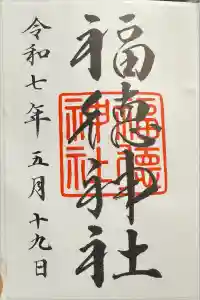 福徳神社
福徳
神社
令和七年五月十九日